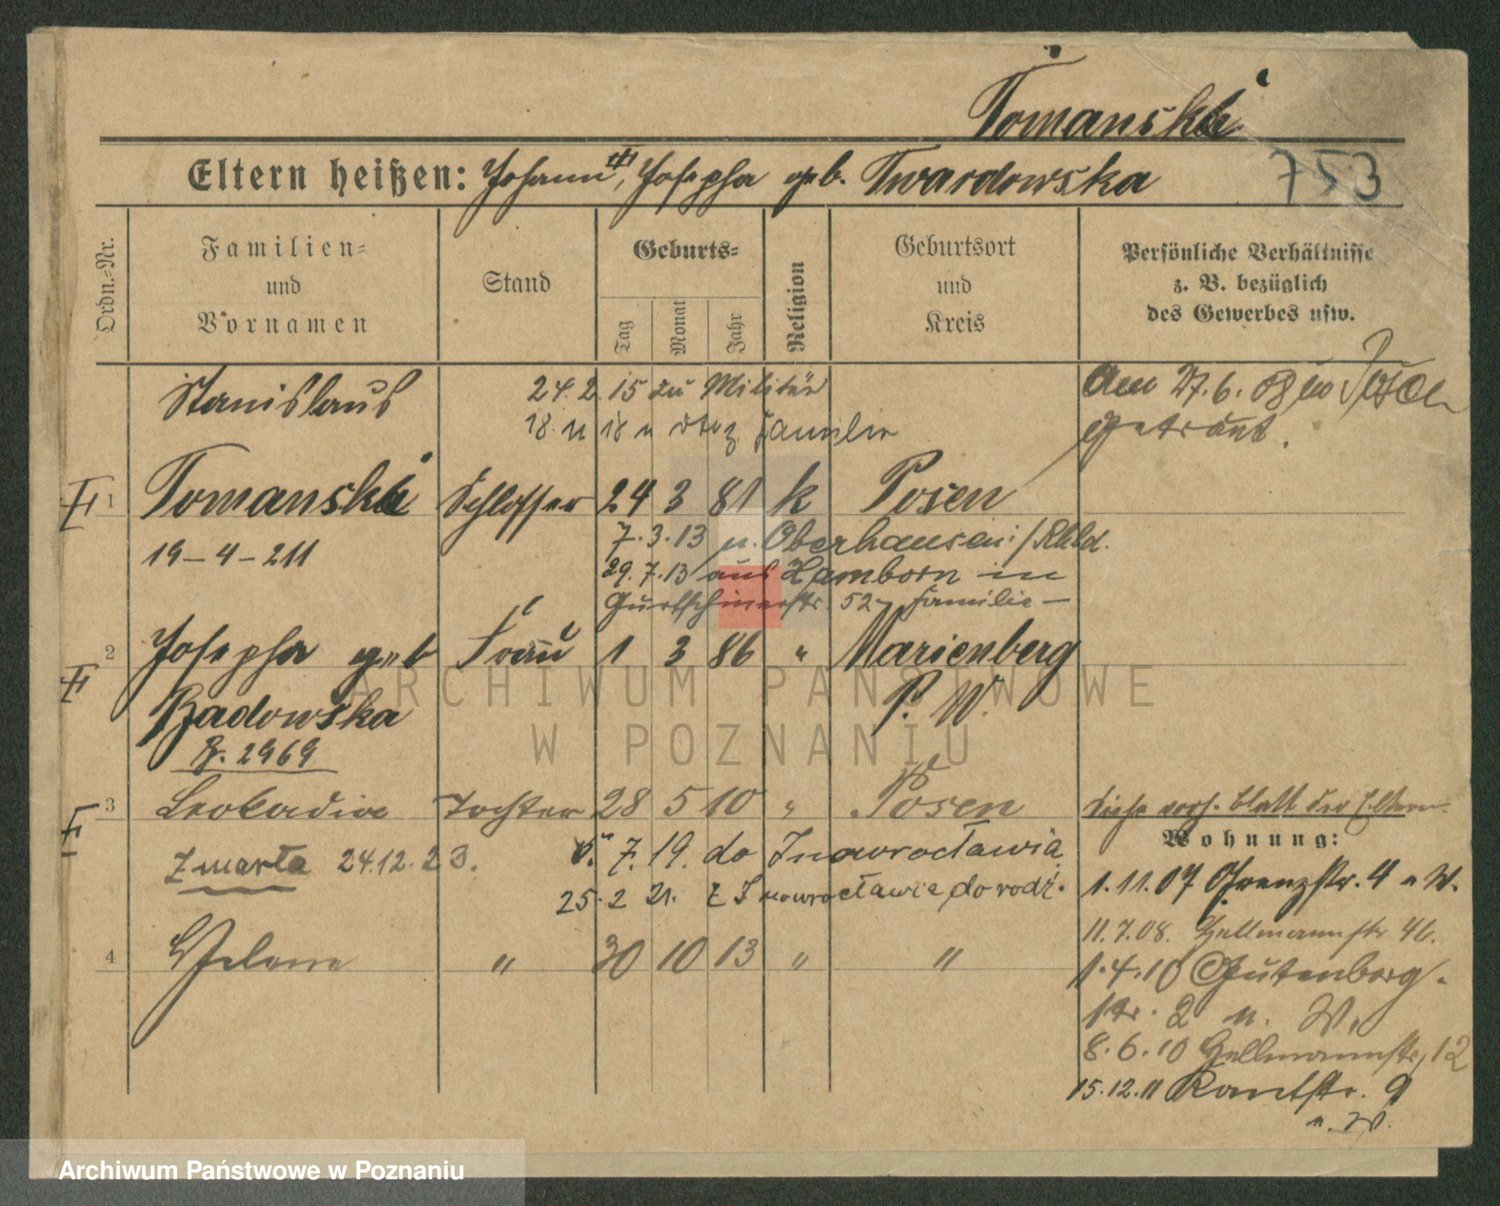 Tomanski
Eltern heißen: Johann, Josepha geb. Twardowska
753
Ordn.-Nr.
Familien- und Vornamen
Stand
Geburts-
Tag
Monat
Jahr
Religion
Geburtsort und Kreis
Persönliche Verhältnisse z. B. bezüglich des Gewerbes usw.
Stanislaus
24.2.15 zu Militär
18. u Familie
Am 27.6.08 in Posen
getraut.
1 Tomanski Schlosser 24 3 81 k Posen
19-4-211
7.3.13 n. Oberhausen /Rhld.
29.7.13 aus Hamborn in
Gurtschinerstr. 52 - Familie -
2 Josepha geb Frau 1 3 86 " Marienberg
Badowska P. W.
B. 2969
3 Leokadia Tochter 28 5 10 " Posen
Siehe vorh. Blatt der Eltern.
Wohnung:
Zmarła 24.12.23.
5. 7. 19. do Inowrocławia
25.2 21. z Inowrocławia do rodz.
1.11.07 Grenzstr. 4 n W.
11.7.08. Hellmannstr. 4b.
4 Helene " 30 10 13 " "
1.4.10 Gutenberg-
str. 2 n. W.
8.6.10 Hellmannstr, 12
15.12.11 Kantstr. 9
n. W.
ARCHIWUM PAŃSTWOWE
W POZNANIU
Archiwum Państwowe w Poznaniu